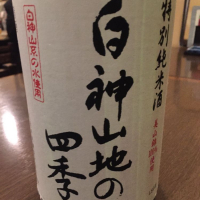 特別純米酒
白神山地の
四季
白神山系の水使用